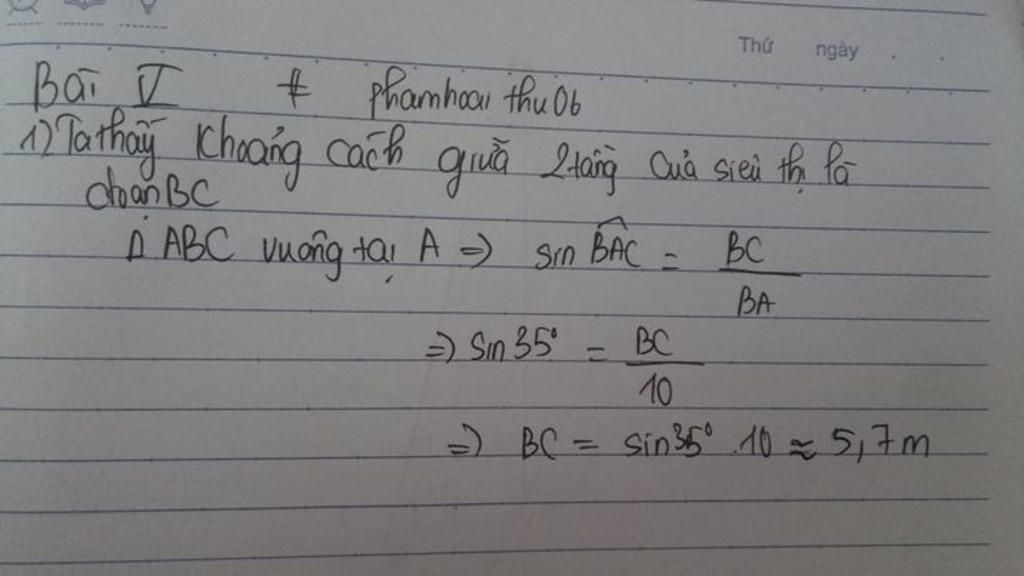 Thứ ngày
Bài V # phamhoaithu06
1) Ta thấy khoảng cách giữa 2 tầng của siêu thị là
đoạn BC
Δ ABC vuông tại A => sin BAC = BC / BA
=> sin 35° = BC / 10
=> BC = sin 35° . 10 ≈ 5,7 m